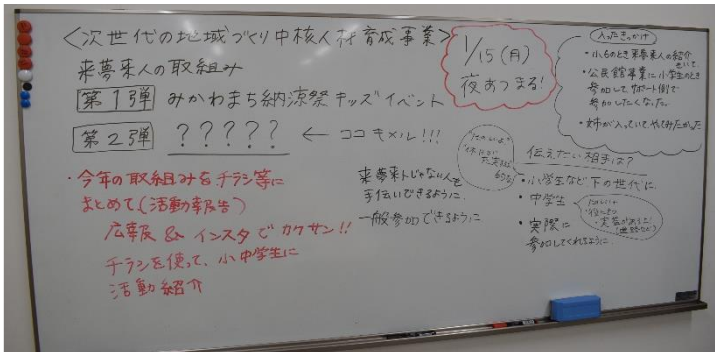 ＜次世代の地域づくり中核人材育成事業＞
来夢来人の取組み
第1弾 みかわまち納涼祭キッズイベント
第2弾 ????? ← ココキメル!!!
1/15(月)
夜あつまる!
入ったきっかけ
・小6のとき来夢来人の紹介
・公民館事業に小学生のとき
参加してサポート側で
参加したくなった。
・姉が入っていてやってみたかった
・今年の取組みをチラシ等に
まとめて(活動報告)
広報 & インスタでカクサン!!
チラシを使って、小中学生に
活動紹介
来夢来人じゃない人も
手伝いできるように
一般参加できるように
伝えたい相手は?
・小学生など下の世代に
・中学生
・実際に
参加してくれるように